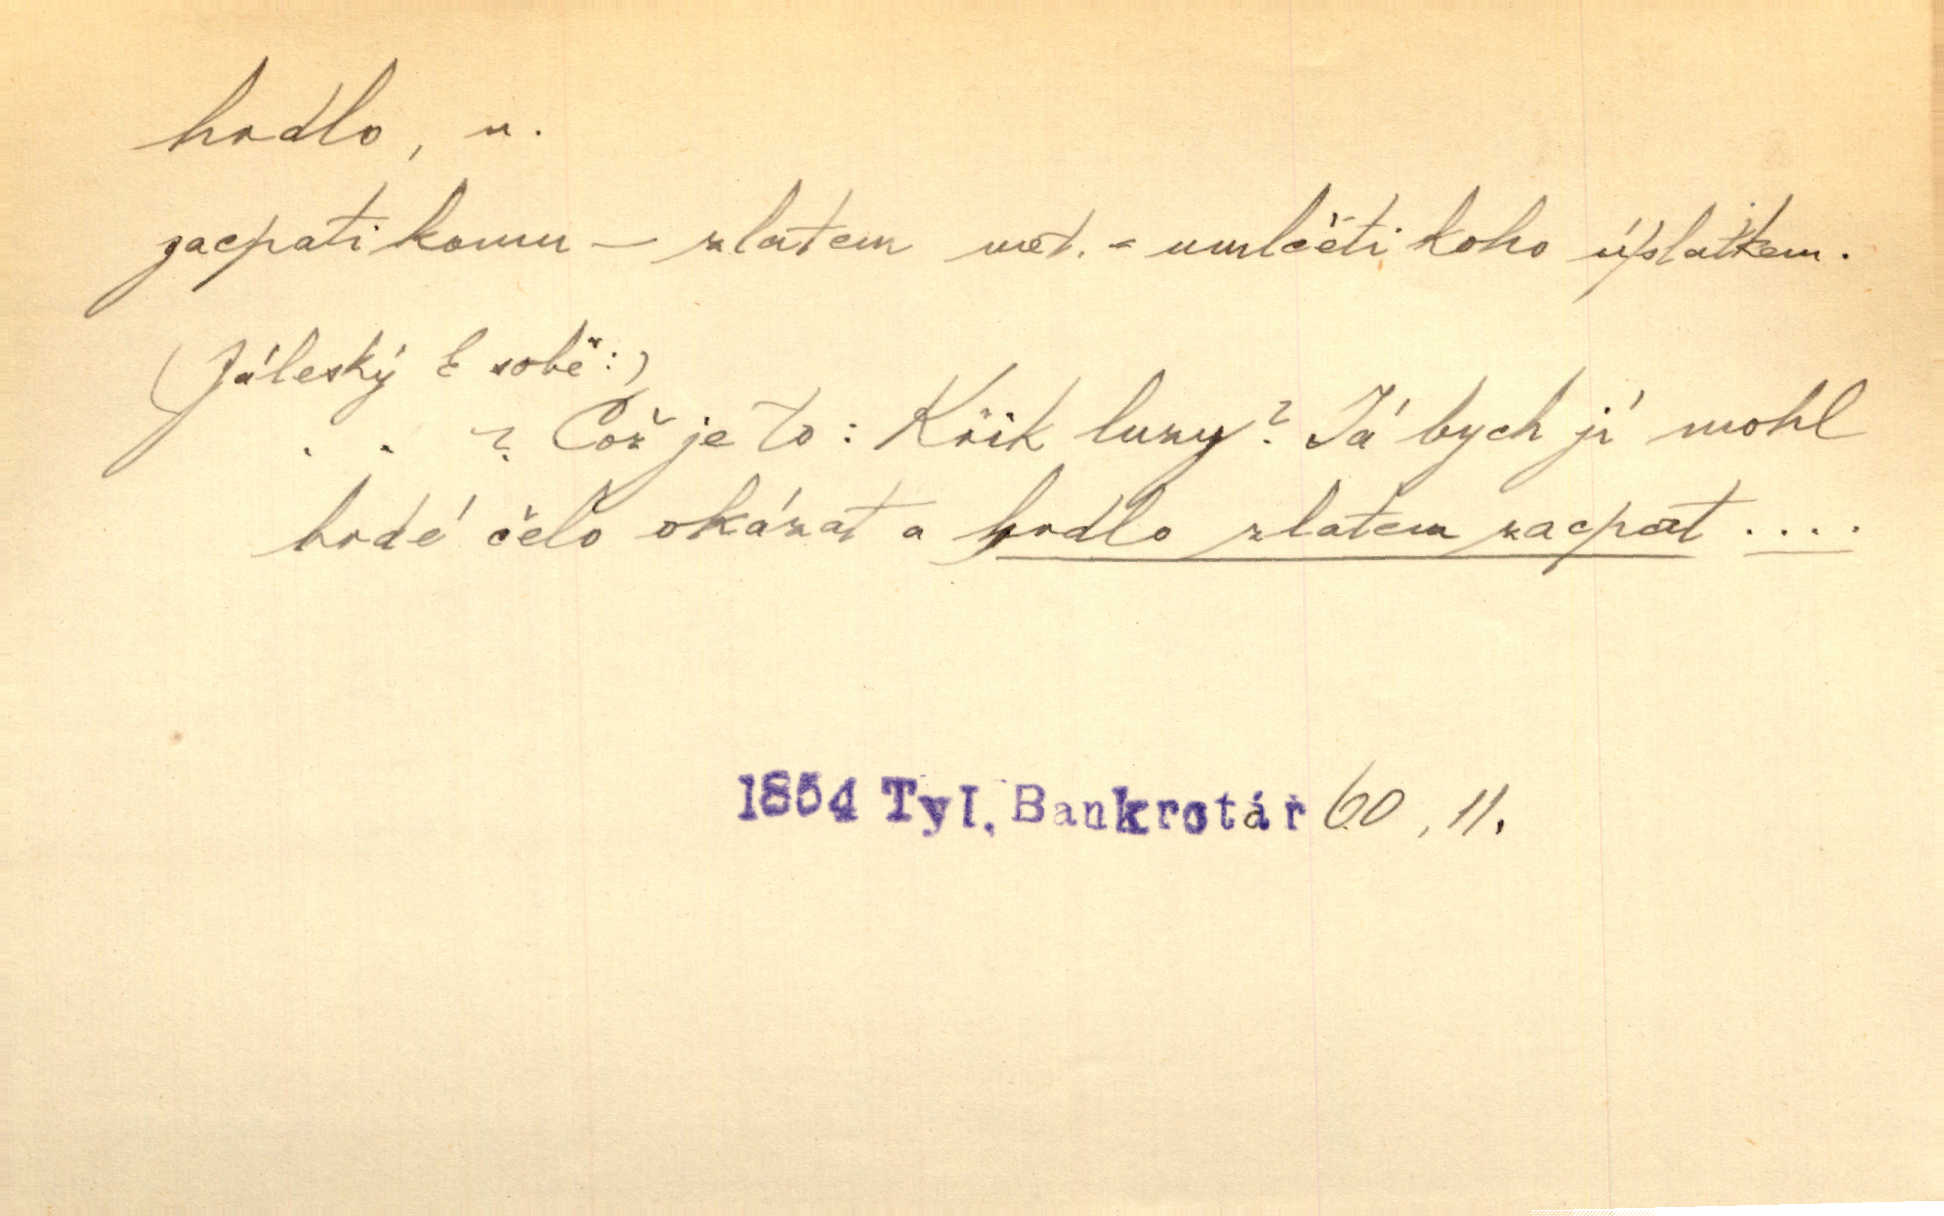 hrdlo, n.
zacpati komu — zlatem met. = umlčeti koho úplatkem.
(Záleský k sobě:)
. . ? Což je to: Křik luzy? Já bych jí mohl
hrdé čelo okázat a hrdlo zlatem zacpat ....
1854 Tyl, Bankrotář 60, 11.